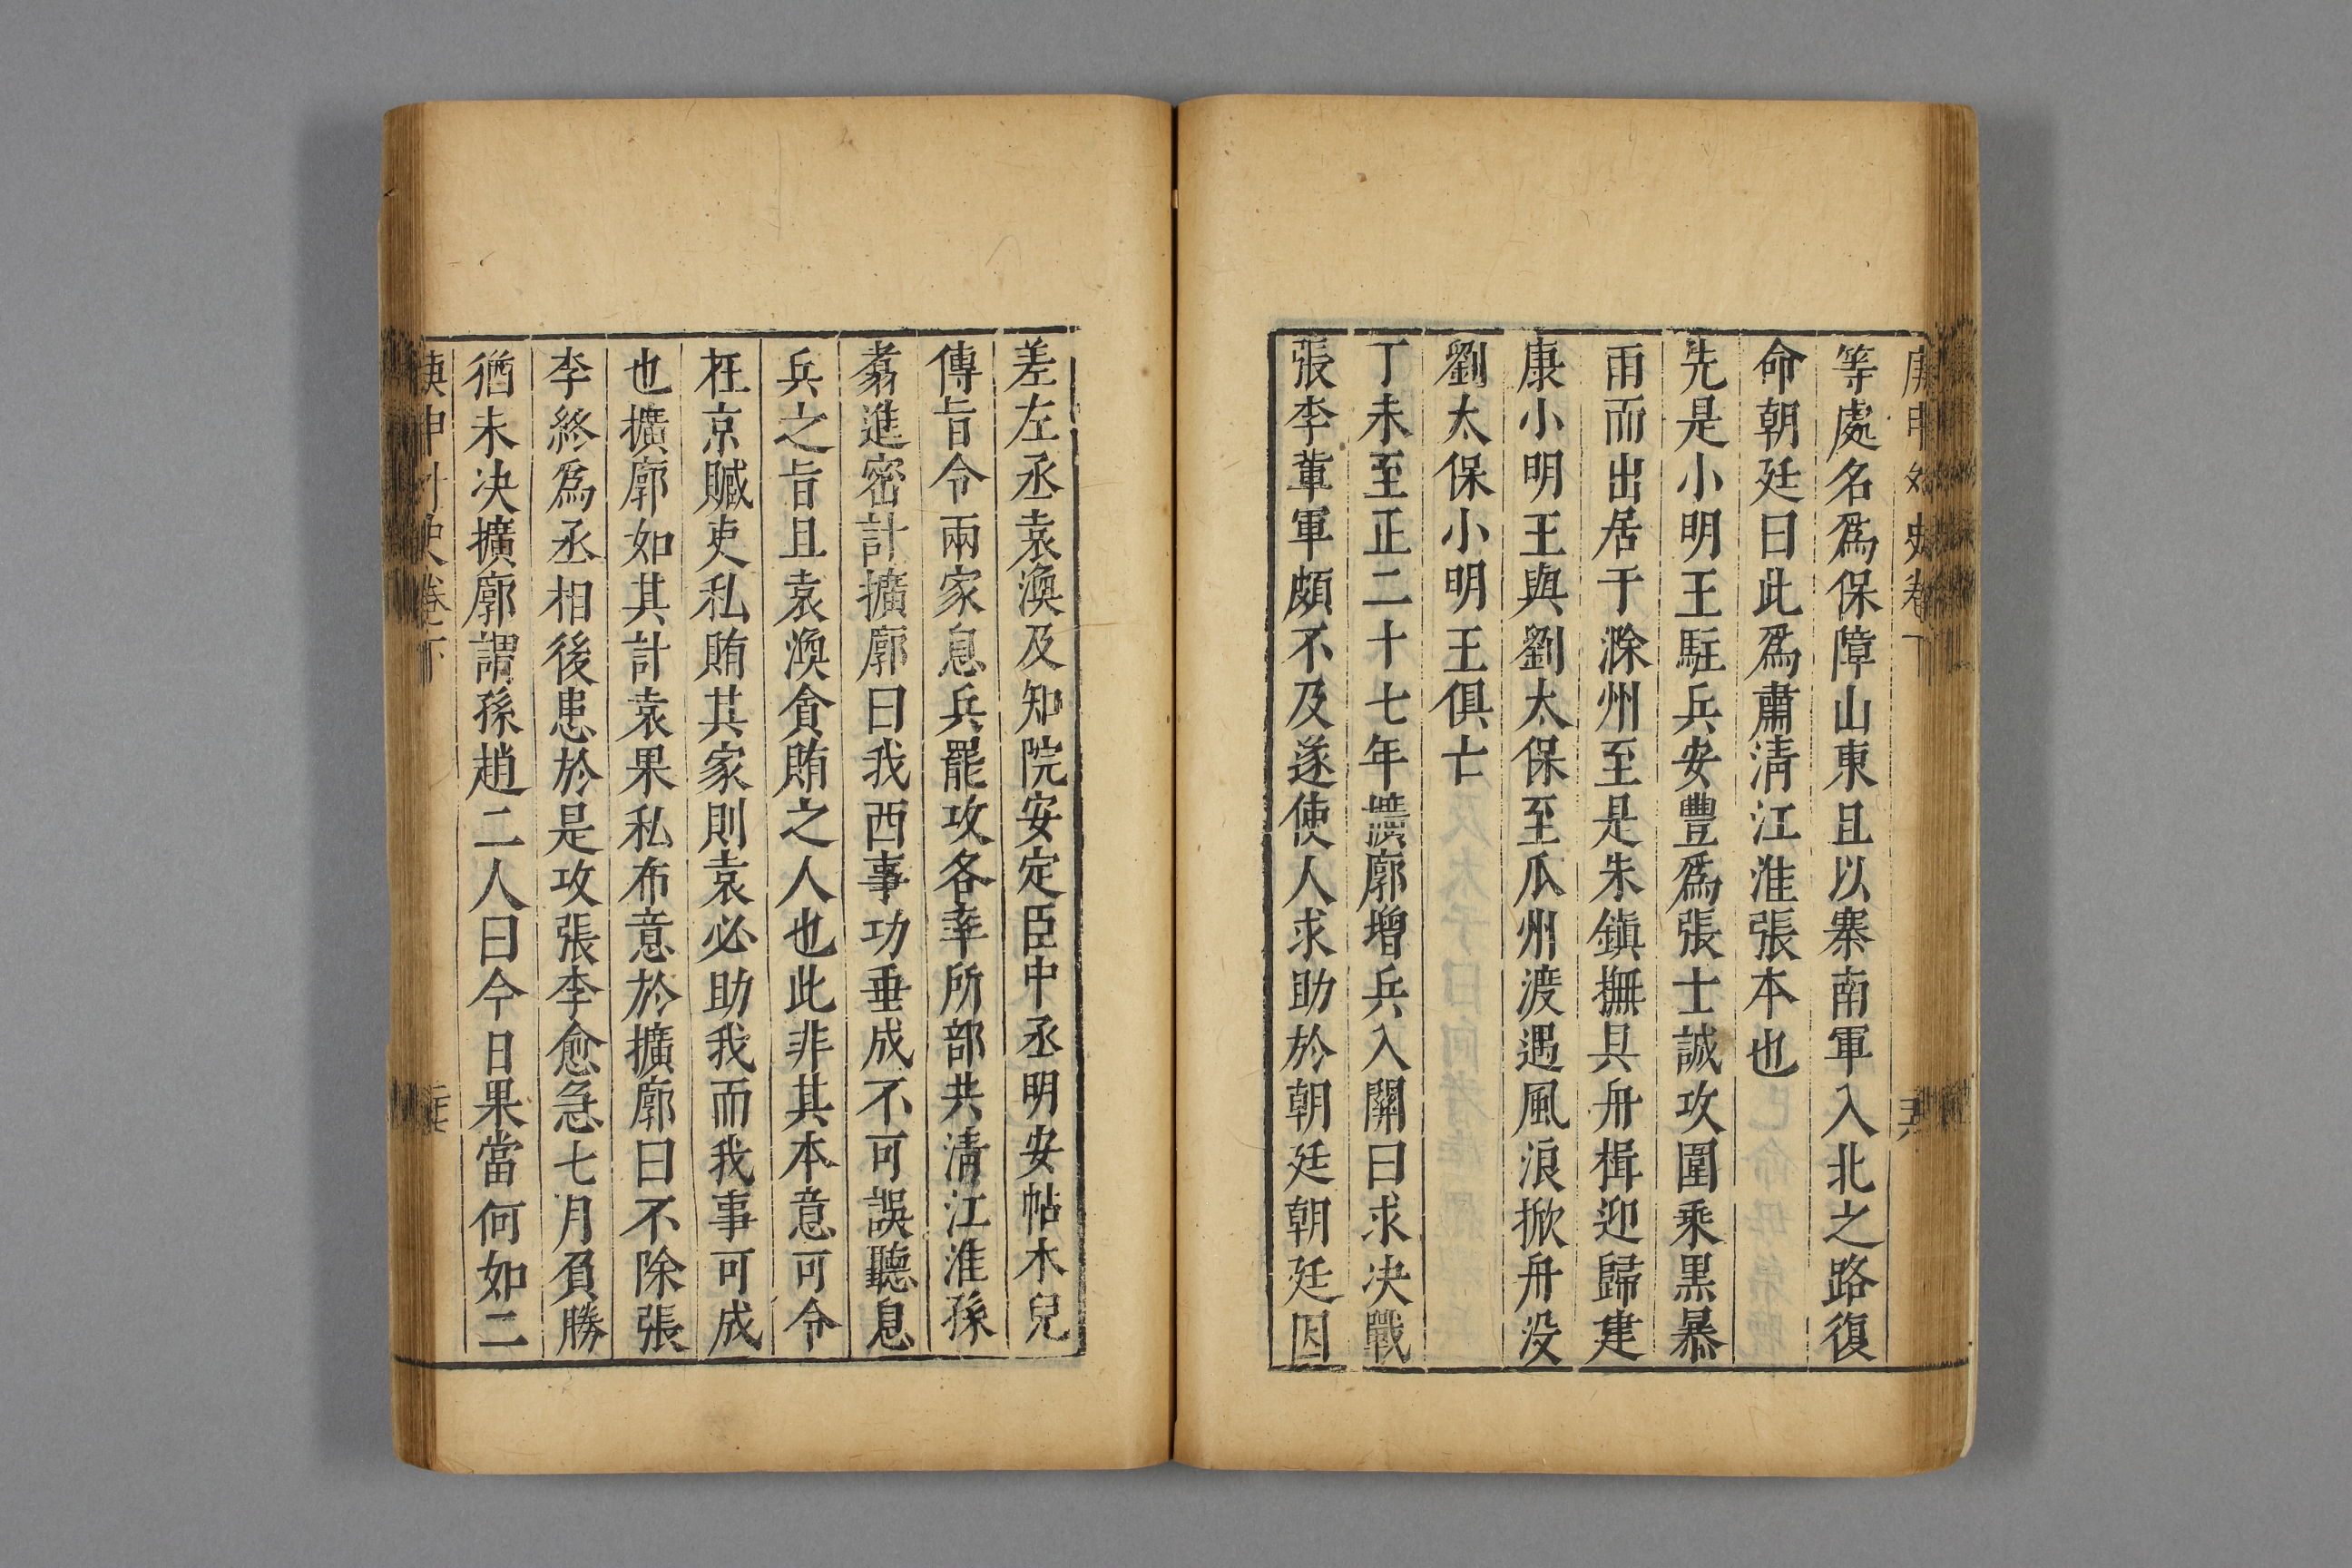 等處名爲保障山東且以寨南軍入北之路復
命朝廷曰此爲肅清江淮張本也
先是小明王駐兵安豐爲張士誠攻圍乘黑暴
雨而出居于滁州至是朱鎮撫具舟楫迎歸建
康小明王與劉太保至瓜州渡遇風浪掀舟没
劉太保小明王俱亡
丁未至正二十七年擴廓增兵入關曰求决戰
張李軰軍頗不及遂使人求助於朝廷朝廷因
差左丞袁渙及知院安定臣中丞明安帖木兒
傳旨令兩家息兵罷攻各率所部共清江淮孫
翥進密計擴廓曰我西事功垂成不可誤聽息
兵之旨且袁渙貪賄之人也此非其本意可令
在京贓吏私賄其家則袁必助我而我事可成
也擴廓如其計袁果私布意於擴廓曰不除張
李終爲丞相後患於是攻張李愈急七月負勝
猶未决擴廓謂孫趙二人曰今日果當何如二
庚申外史卷下